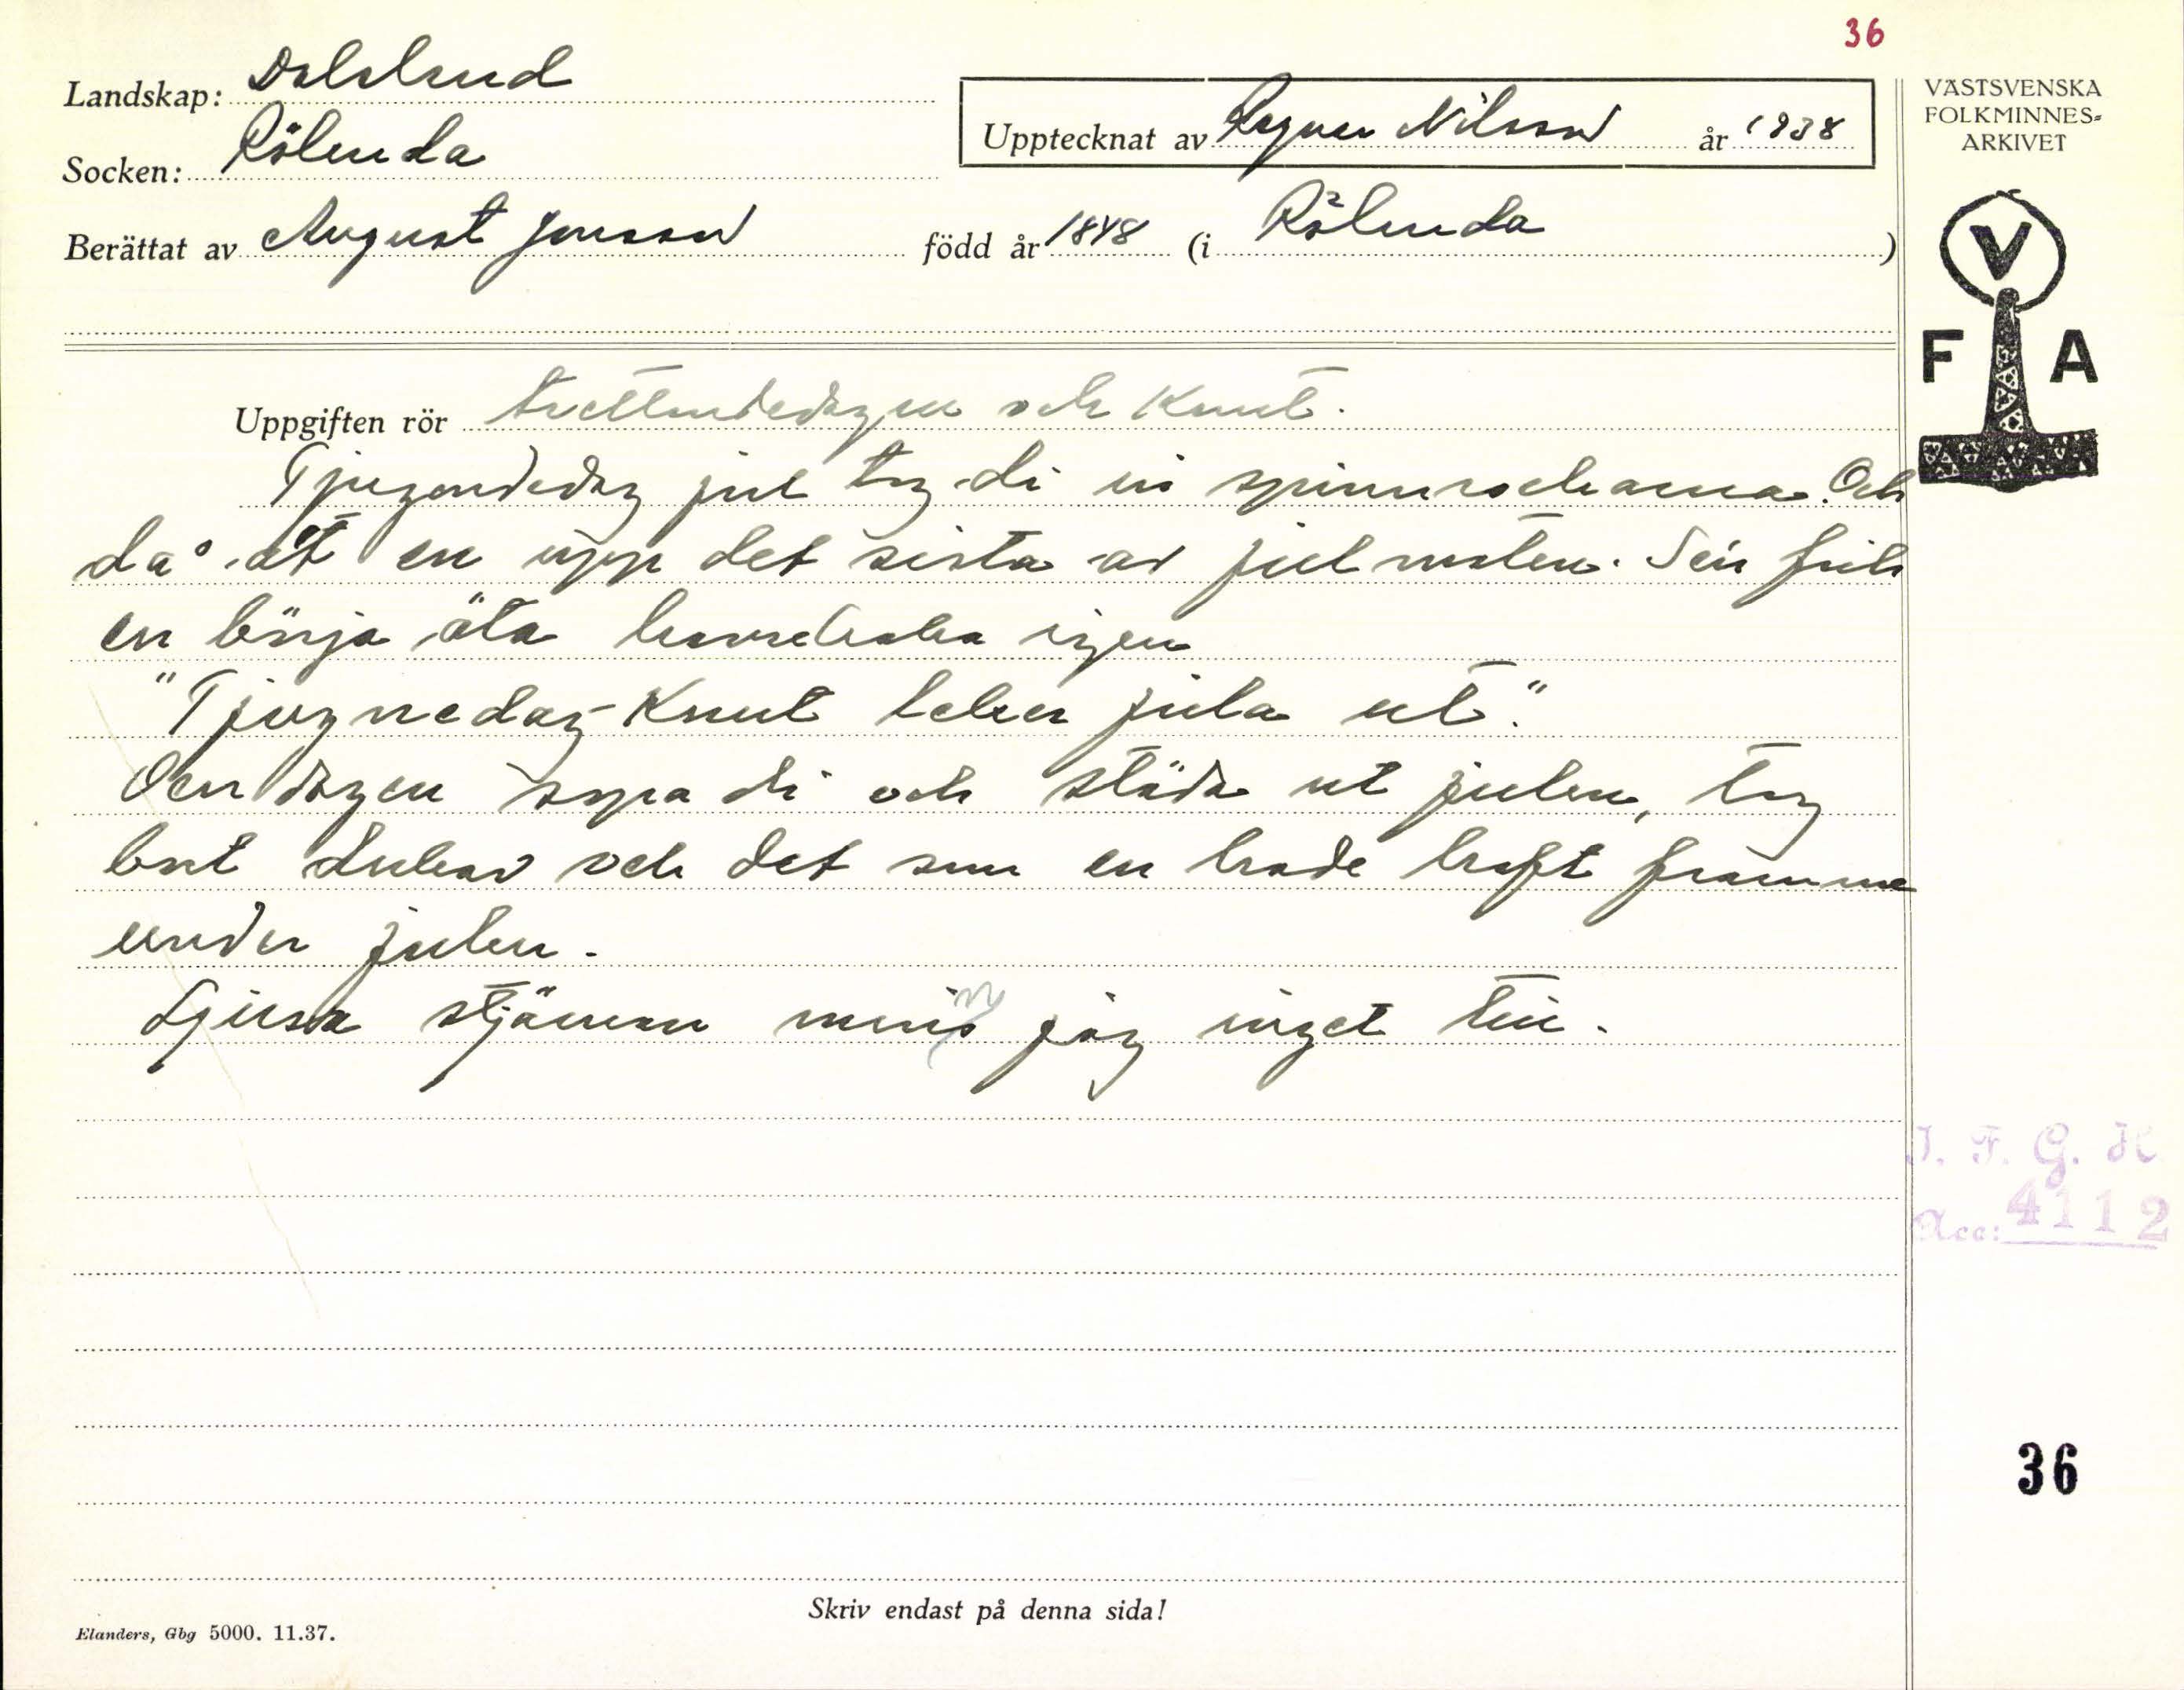 36
Landskap: Dalsland
Socken: Rölanda
Upptecknat av Ragnar Nilsson år 1938
Berättat av August Jonsson född år 1848 (i Rölanda)
VÄSTSVENSKA
FOLKMINNES-
ARKIVET
V
F A
Uppgiften rör trettondedagen och Knut.
Tjugondedag jul tog di in spinnrockarna. Och
då åt en upp det sista av julmaten. Sen fick
en börja äta havrekaka igen
"Tjugnedag Knut kakar jula ut."
Den dagen sopa di och städa ut julen, tog
bort dukar och det som en hade haft framme
under julen.
Ljusa stjärnan mins jag inget um.
I. F. G. H
Acc: 4112
36
Skriv endast på denna sida!
Elanders, Gbg 5000. 11.37.